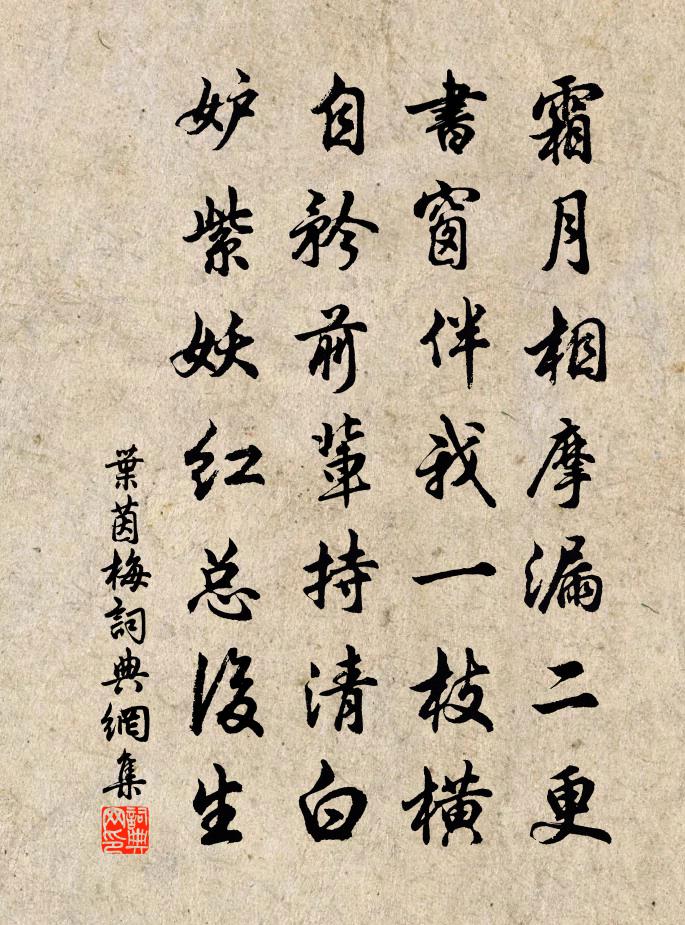 霜月相摩漏二更
書窗伴我一枝橫
自矜前輩持清白
妒紫妖紅总後生
葉茵梅詞典網集
詞典网印